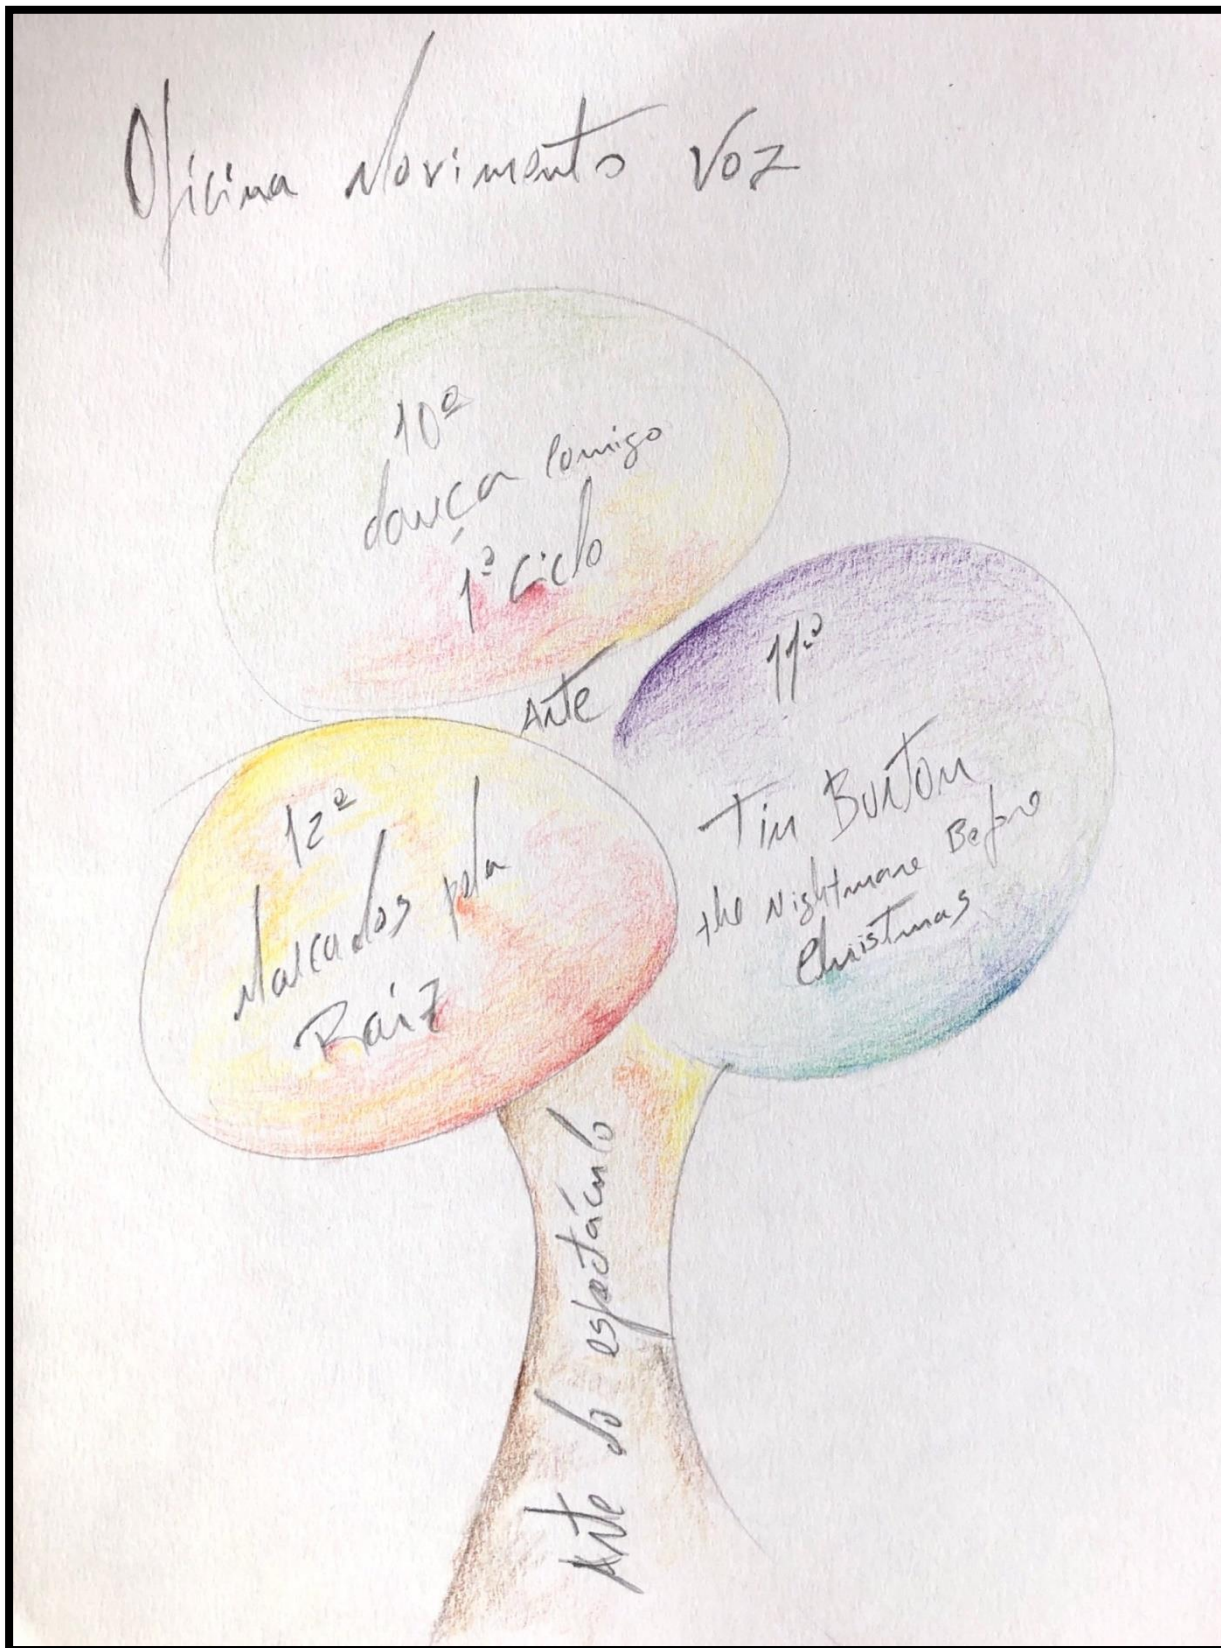 Oficina Movimento Voz
10º
dança comigo
1º Ciclo
11º
Tim Burton
the Nightmare Before
Christmas
Arte
12º
Marcados pela
Raiz
Arte do espetáculo